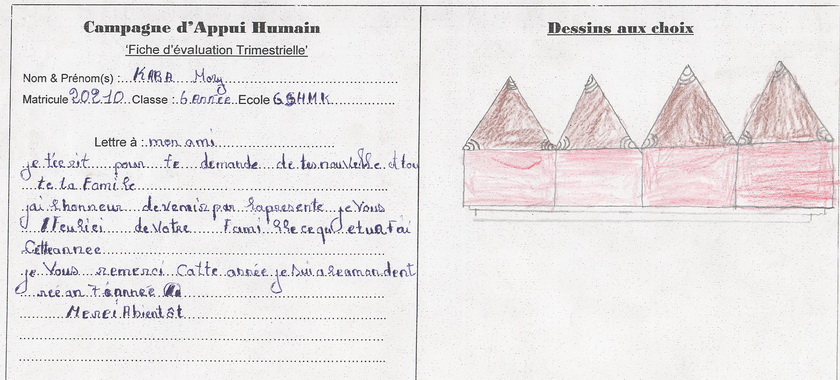 Campagne d'Appui Humain
'Fiche d'évaluation Trimestrielle'
Nom & Prénom(s) : KABA Mory
Matricule 20210 Classe : 6 Année Ecole GSHMK
Lettre à : mon ami
je t'ecrit pour te demande de tes nouvelle d tou
te la Famile
jai lhonneur devenir par lapresente je Vous
de Votre Famille ce qu
Cette annee
je Vous remerci Catte année je suis
7 année
Merci Abientot
Dessins aux choix